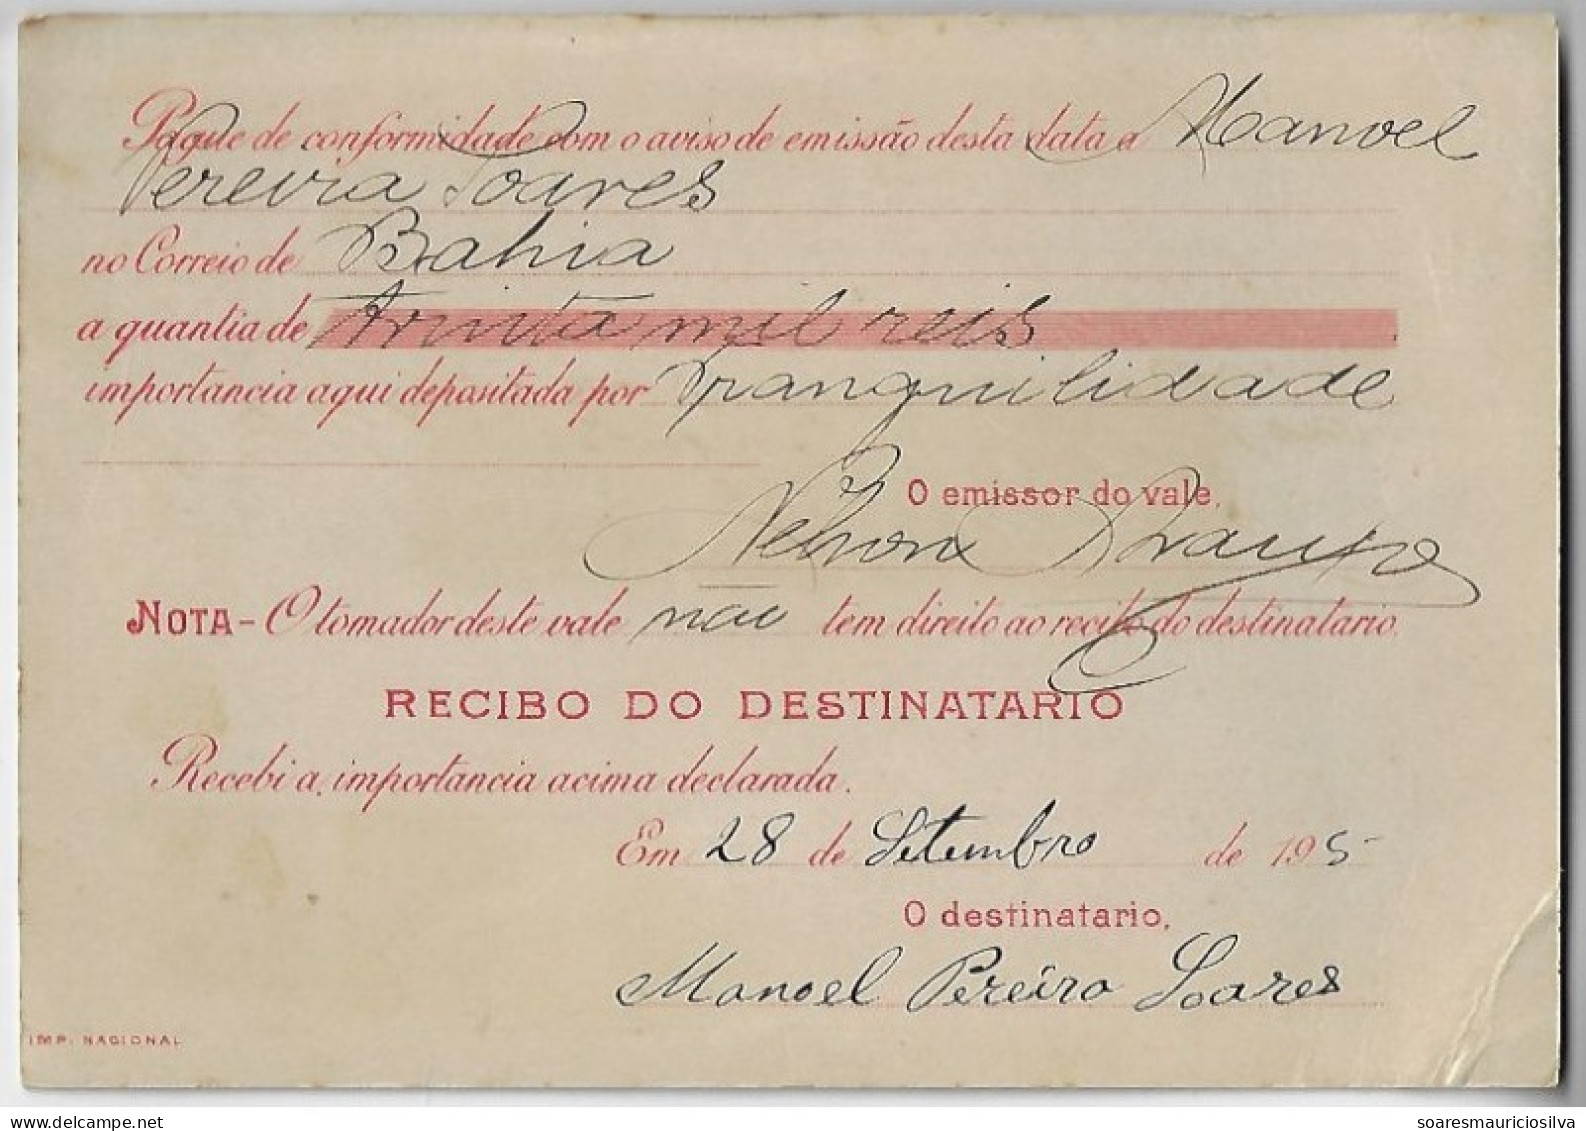 Pague de conformidade com o aviso de emissão desta data a Manoel
Pereira Soares
no Correio de Bahia
a quantia de trinta mil reis
importancia aqui depositada por Tranquilidade
O emissor do vale,
Nelson
NOTA - O tomador deste vale não tem direito ao recibo do destinatario.
RECIBO DO DESTINATARIO
Recebi a importancia acima declarada.
Em 28 de Setembro de 195
O destinatario,
Manoel Pereira Soares
IMP. NACIONAL
soaresmauriciosilva